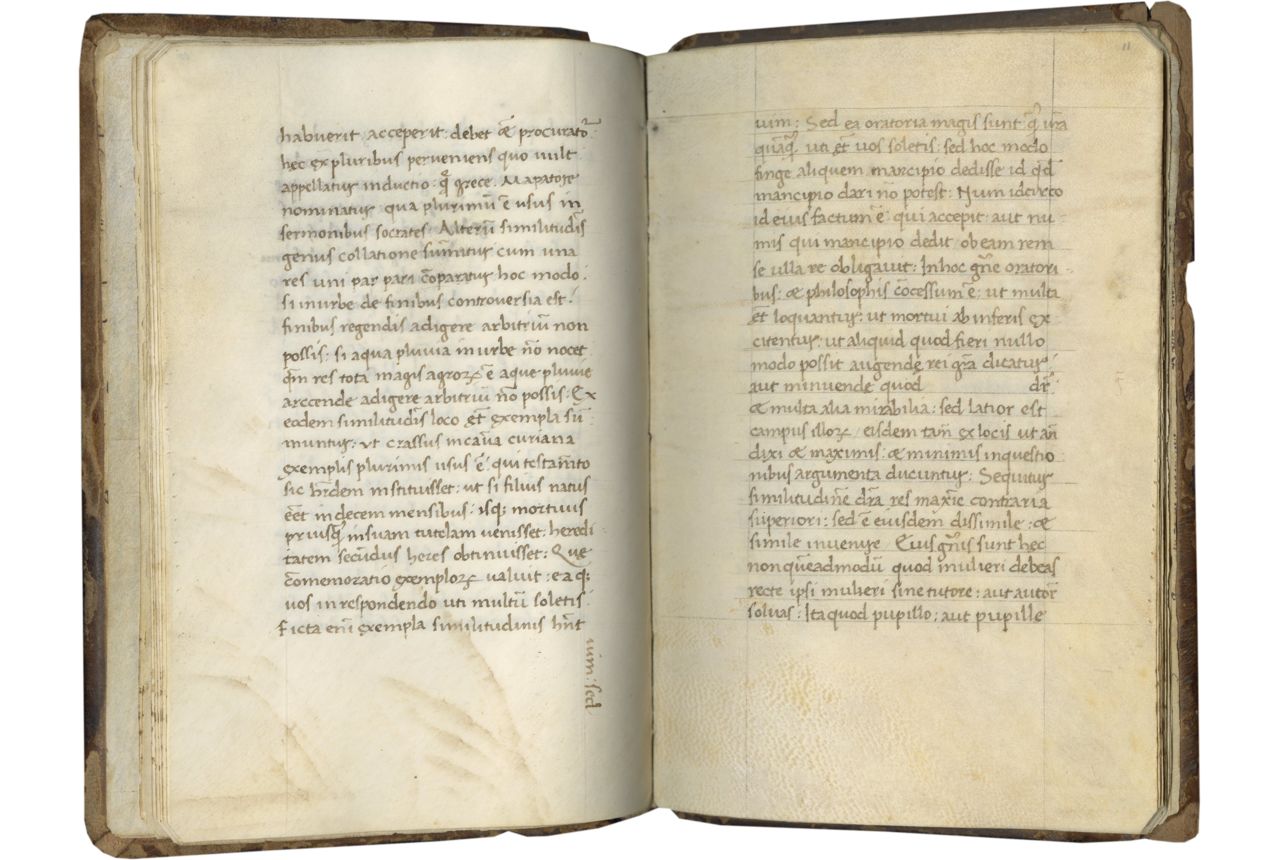 habuerit acceperit: debet &̄ procurato᷑.
hęc ex pluribus perveniens quo vult
appellatur inductio: q̄ grece. Mapatore
nominatur qua plurimū ē usus in
sermonibus socrates. Alterū similitudīs
genus collatione sūmatur cum una
res uni par pari cōparatur hoc modo:
si inurbe de finibus controversia est.
finibus regendis adigere arbitriū non
possis: si aqua pluvia in urbe nō nocet
qm̄ res tota magis agroꝝ ē aque pluvie
arccende adigere arbitriū nō possis. Ex
eodem similitudīs loco et̄ exempla su᷑
muntur: ut crassus incaūa curiana
exemplis plurimis usus ē: qui testam̄to
sic hr̄dem instituisset: ut si filius natus
eēt indecem mensibus: isq; mortuus
priusq̄ insuam tutelam venisset: heredi
tatem secūdus heres obtinuisset: Que
cōmemoratio exemploꝝ valuit: ea q;
vos inrespondendo uti multū soletis.
ficta enī exempla similitudinis hn̄t
uim: sed
11
uim: Sed ea oratoria magis sunt q̄ ura
quāq̄ uti et̄ uos soletis: sed hoc modo
finge aliquem mancipio dedisse id qd̄
mancipio dari nō potest: Num idcirco
id eius factum ē qui accepit: aut nu
mis qui mancipio dedit ob eam rem
se ulla re obligavit: Inhoc gn̄e oratori
bus: & philosophis cōcessum ē: ut multa
et̄ loquantur: ut mortui ab inferis ex
citentur: ut aliquid quod fieri nullo
modo possit augende rei gr̄a dicatur:
aut minuende quod dr̄
& multa alia mirabilia: sed latior est
campus illoꝝ eisdem tam̄ ex locis ut an̄
dixi & maximis: & minimis inquestio
nibus argumenta ducuntur: Sequitur
similitudinē dr̄a res maxīe contraria
superiori: sed ē eiusdem dissimile: &
simile invenire Eius gn̄is sunt hęc
non quēadmodū quod mulieri debeas
recte ipsi mulieri sine tutore: aut autor̄
solvas: Ita quod pupillo: aut pupille